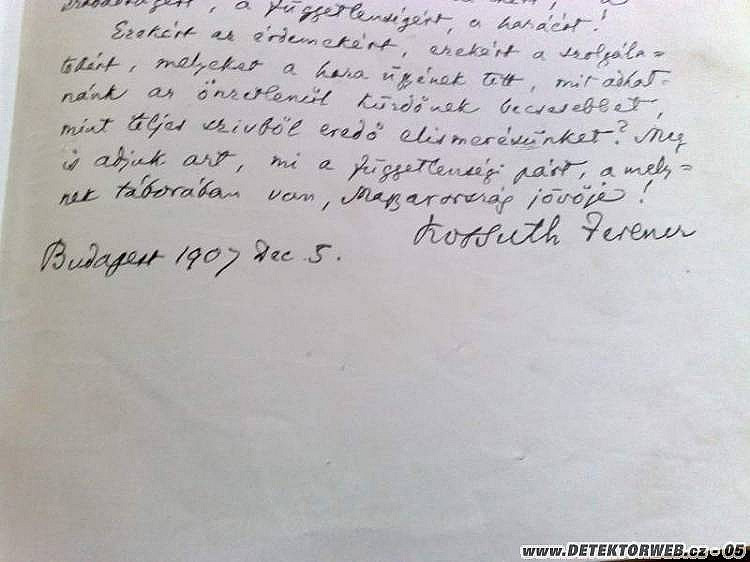 szabadságért, a függetlenségért, a hazáért!
Ezekért az érdemekért, ezekért a szolgála=
tokért, melyeket a haza ügyének tett, mit adhat-
nánk az önzetlenül küzdőnek becsesebbet,
mint teljes szivből eredő elismerésünket? Meg
is adjuk azt, mi a függetlenségi párt, a mely=
nek táborában van, Magyarország jövője!
Kossuth Ferencz
Budapest 1907 Dec 5.
www.DETEKTORWEB.cz - 05